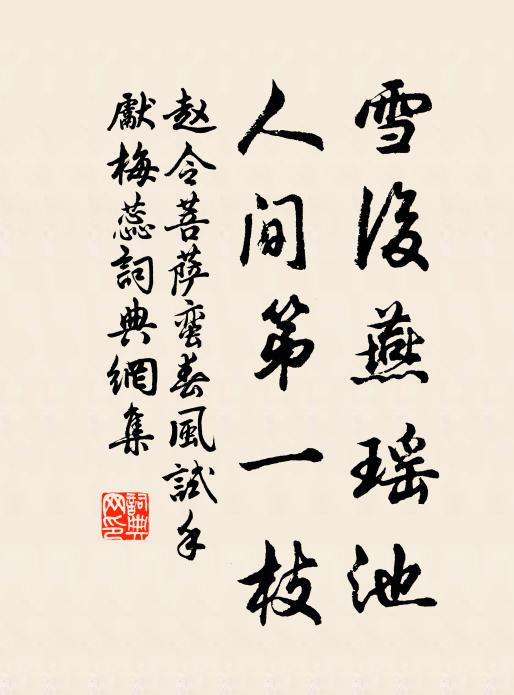 雪後燕瑶池
人间第一枝
赵令菩萨蛮春風試手
獻梅蕊詞典網集
詞典网印